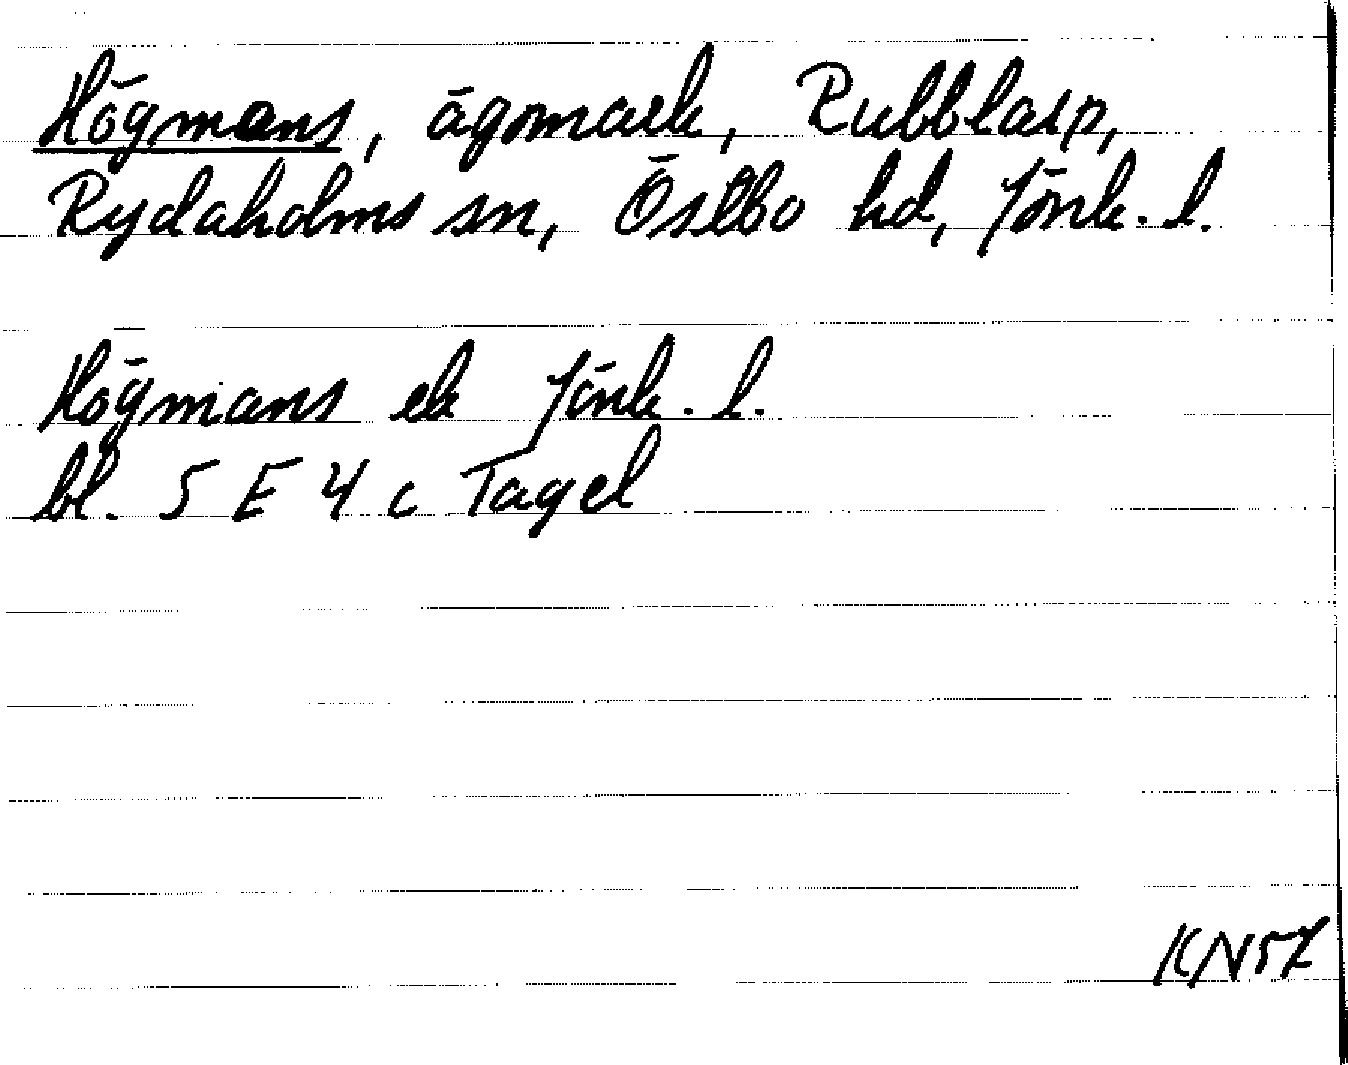 Högmans, ägomark, Rubblarp,
Rydaholms sn, Östbo hd, Jönk. l.
Högmans ek Jönk. l.
bl. 5 E 4 c Tagel